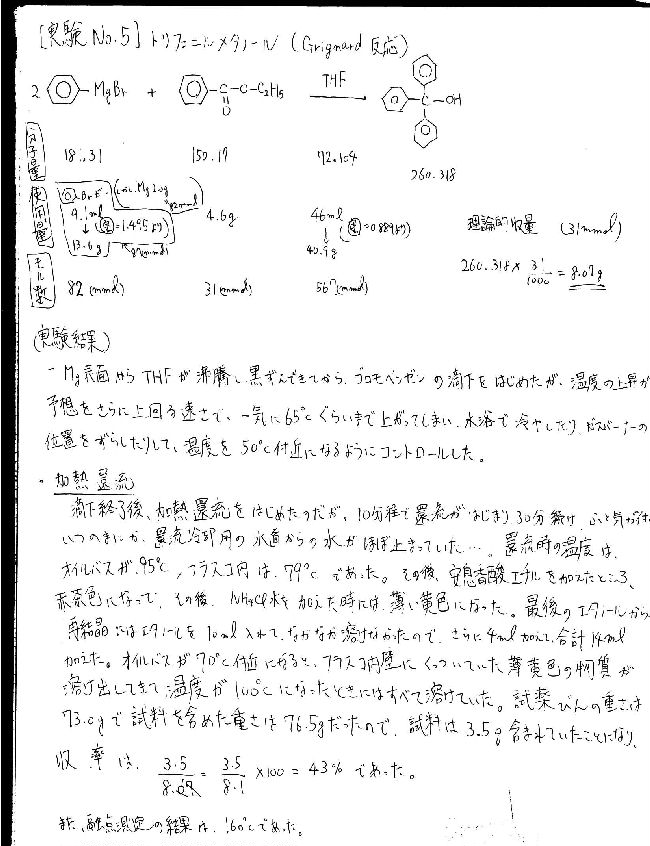 [実験 No.5] トリフェニルメタノール (Grignard 反応)
2 -MgBr + -C-C-C2H5 THF C-OH
O
分子量 181.31 150.17 72.104 260.318
使用量 BrE. Mg 2.0g 82mmol
9.1ml 4.6g 46ml 理論的収量 (31mmol)
13.6g 40.9g
260.318 × 31/1000 = 8.07g
モル数 82 (mmol) 31(mmol) 567(mmol)
(実験結果)
・Mg表面からTHFが沸騰し黒ずんできてから、ブロモベンゼンの滴下をはじめたが、温度の上昇が
予想をさらに上回る速さで、一気に65℃ぐらいまで上がってしまい、水浴で冷やしたり、ガスバーナーの
位置をずらしたりして、温度を50℃付近になるようにコントロールした。
・加熱還流
滴下終了後、加熱還流をはじめたのだが、10分程で還流がはじまり30分続け、ふと気が付けば
いつのまにか、還流冷却用の水道からの水がほぼ止まっていた…。還流時の温度は、
オイルバスが95℃, フラスコ内は、79℃であった。その後、安息香酸エチルを加えたところ、
赤茶色になって、その後、NH4Cl水を加えた時には、薄い黄色になった。最後のエタノールから
再結晶にはエタノールを10ml入れて、なかなか溶けなかったので、さらに4ml加えて、合計14ml
加えた。オイルバスが70℃付近になると、フラスコ内壁にくっついていた薄黄色の物質が
溶け出してきて温度が100℃になったときにはすべて溶けていた。試薬びんの重さは
73.0gで試料を含めた重さは76.5gだったので、試料は3.5g含まれていたことになり、
収率は、3.5/8.07 = 3.5/8.1 ×100 = 43% であった。
また、融点測定の結果は、160℃であった。